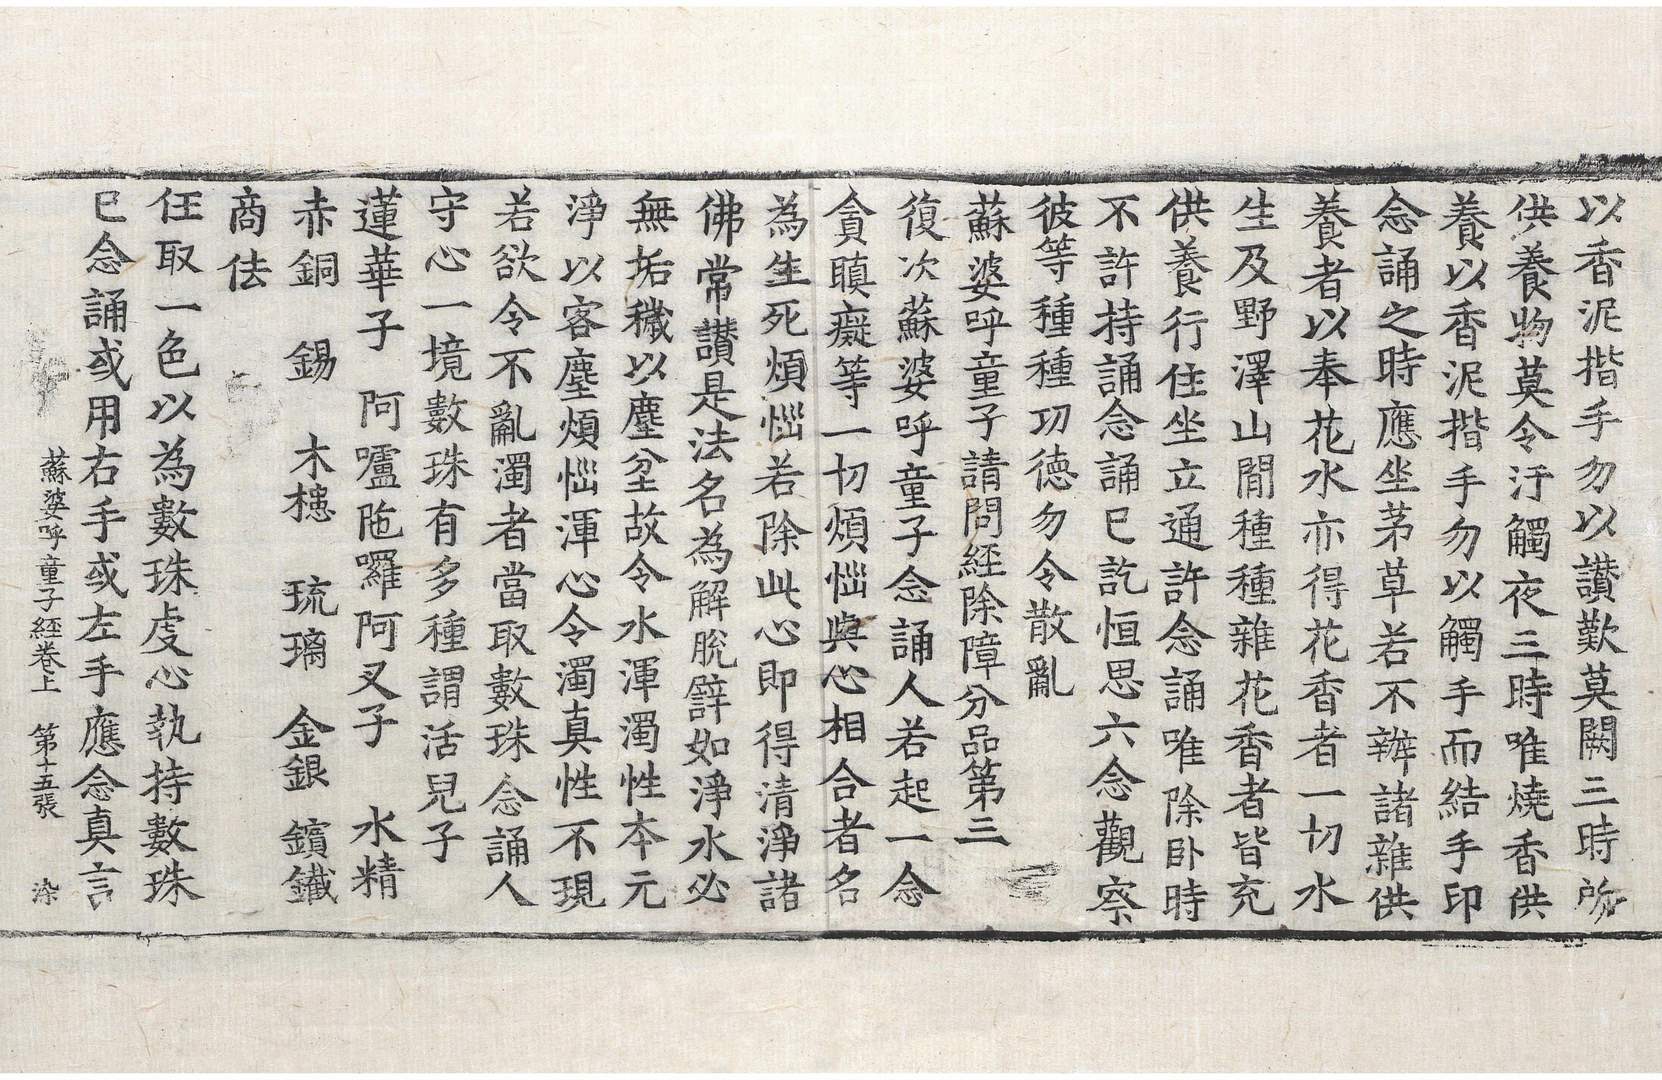 以香泥揩手勿以讃歎莫闕三時所
供養物莫令汙觸夜三時唯燒香供
養以香泥揩手勿以觸手而結手印
念誦之時應坐茅草若不辨諸雜供
養者以奉花水亦得花香者一切水
生及野澤山閒種種雜花香者皆充
供養行住坐立通許念誦唯除卧時
不許持誦念誦已訖恒思六念觀察
彼等種種功徳勿令散亂
蘇婆呼童子請問經除障分品第三
復次蘇婆呼童子念誦人若起一念
貪瞋癡等一切煩惱與心相合者名
為生死煩惱若除此心即得清淨諸
佛常讃是法名為解脫譬如淨水必
無垢穢以塵坌故令水渾濁性本元
淨以客塵煩惱渾心令濁真性不現
若欲令不亂濁者當取數珠念誦人
守心一境數珠有多種謂活兒子
蓮華子 阿嚧陁囉阿叉子 水精
赤銅 錫 木槵 琉璃 金銀 鑌鐵
商佉
任取一色以為數珠虔心執持數珠
已念誦或用右手或左手應念真言
蘇婆呼童子經卷上 第十五張 染